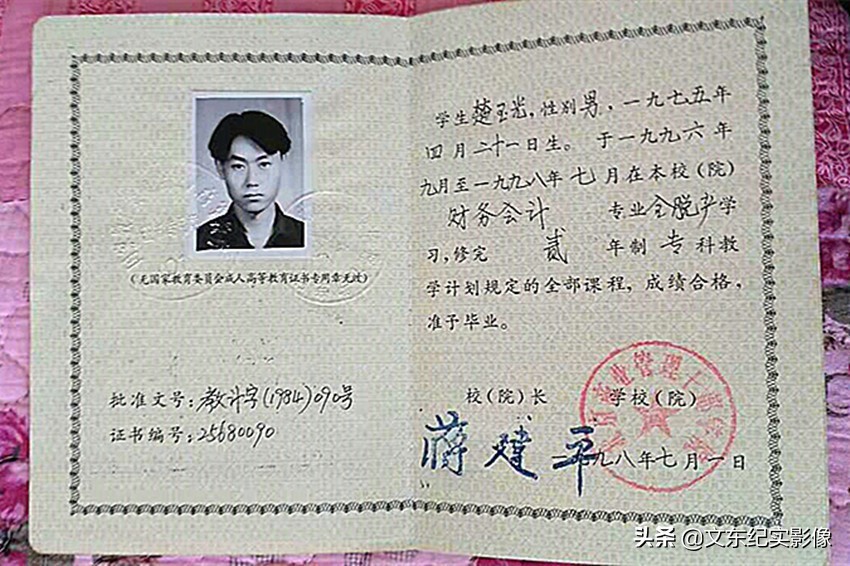 (无国家教育委员会成人高等教育证书专用章无效)
批准文号：教计字(1984)090号
证书编号：25680090
学生楚玉光，性别男，一九七五年
四月二十一日生。于一九九六年
九月至一九九八年七月在本校(院)
财务会计 专业全脱产学
习，修完 贰 年制 专科教
学计划规定的全部课程，成绩合格，
准予毕业。
校(院)长 学校(院)
蒋建平
一九九八年七月一日
业管理干部学院
头条 @文东纪实影像